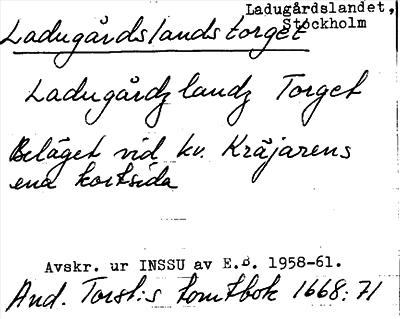 Ladugårdslandet,
Stockholm
Ladugårdslandstorget
Ladugårdz landz Torget
Beläget vid kv. Kräjarens
ena kortsida
Avskr. ur INSSU av E.B. 1958-61.
And. Torst:s tomtbok 1668:71